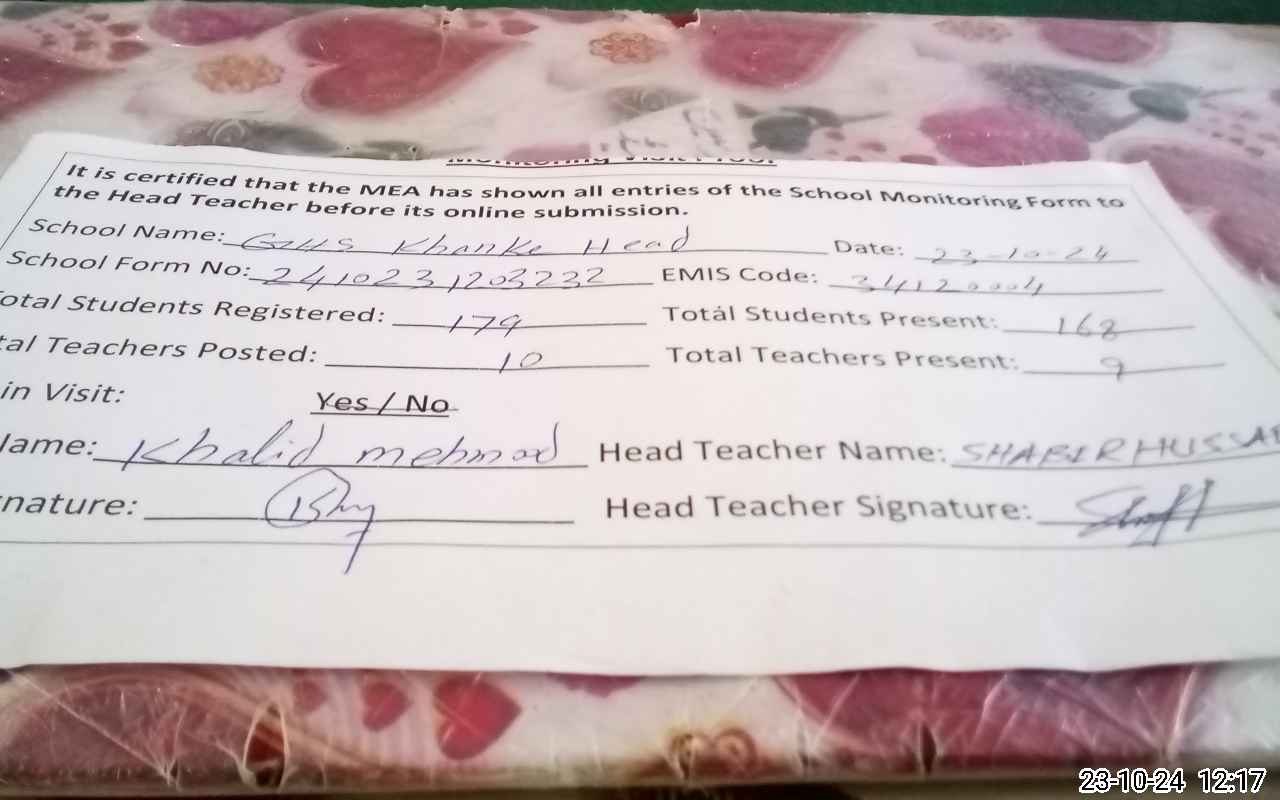 Monitoring Visit Proof
It is certified that the MEA has shown all entries of the School Monitoring Form to
the Head Teacher before its online submission.
School Name: GHS Khanke Head Date: 23-10-24
School Form No: 2410231203232 EMIS Code: 34120004
otal Students Registered: 179 Total Students Present: 168
tal Teachers Posted: 10 Total Teachers Present: 9
in Visit: Yes / No
Name: Khalid mehmod Head Teacher Name: SHABIR HUSSA
nature: Head Teacher Signature:
23-10-24 12:17